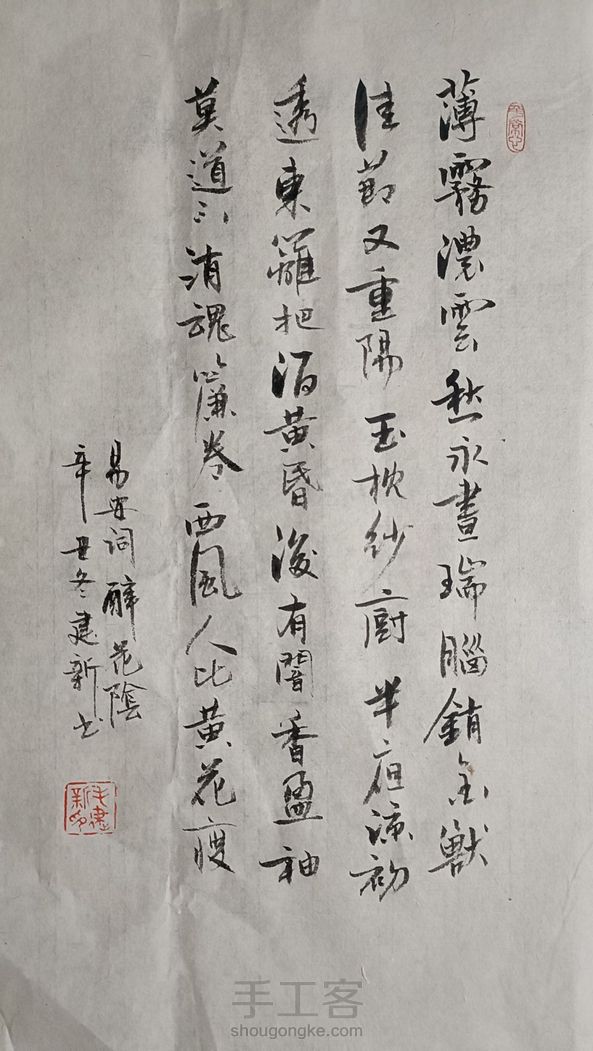 薄霧濃雲愁永晝瑞腦銷金獸
佳節又重陽玉枕紗廚半夜涼初
透東籬把酒黃昏後有闇香盈袖
莫道不消魂簾卷西風人比黃花瘦
易安词醉花陰
辛丑冬建新书
手工客
shougongke.com